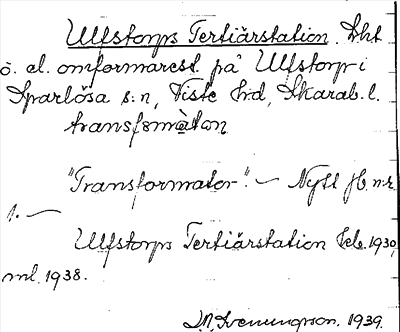 Ulfstorps Tertiärstation. Lht
o. el. omformarest. på Ulfstorp i
Sparlösa s:n, Viste h:d, Skarab. l.
transfərmàtɷn
"Transformator". — Nytt jb. n:r
1. —
Ulfstorps Tertiärstation 1930,
ml. 1938.
1939.